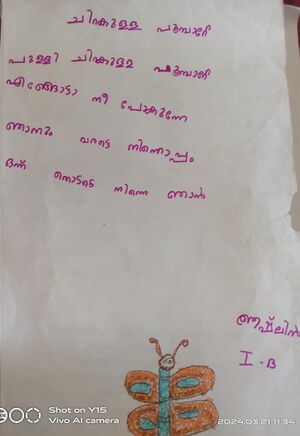 ചിറകുള്ള പൂമ്പാറ്റേ
പുള്ളി ചിറകുള്ള പൂമ്പാറ്റേ
എങ്ങോടാ നീ പോകുന്നേ
ഞാനും വരട്ടെ നിന്നൊപ്പം
ഒന്ന് തൊടട്ടെ നിന്നെ ഞാൻ
I - B
Shot on Y15
Vivo AI camera
2024.03.21 11:34